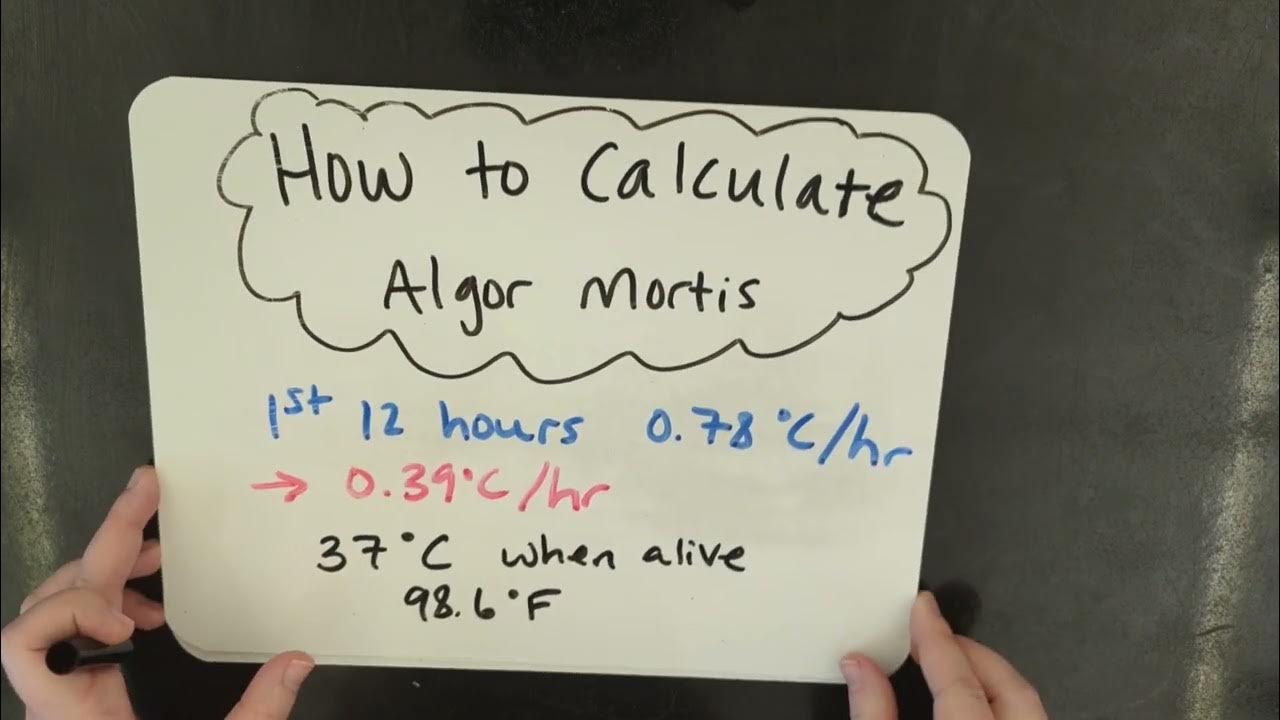 How to Calculate
Algor Mortis
1st 12 hours 0.78°C/hr
→ 0.39°C/hr
37°C when alive
98.6°F